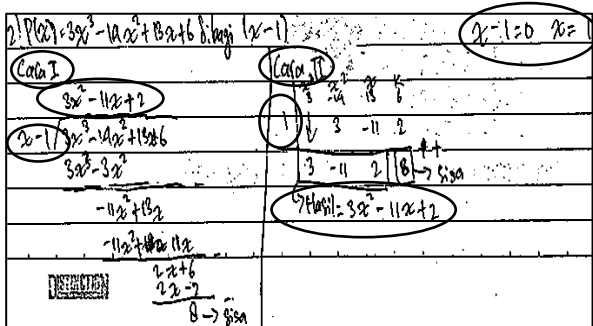 2) P(x) = 3x³ - 14x² + 13x + 6 dibagi (x - 1)
x - 1 = 0 x = 1
Cara I
3x² - 11x + 2
x - 1 / 3x³ - 14x² + 13x + 6
3x³ - 3x²
-11x² + 13x
-11x² + 11x
2x + 6
2x - 2
8 → sisa
Cara II
x³ x² x k
3 -14 13 6
1 ↓ 3 -11 2
+
3 -11 2 8 → sisa
↳ Hasil = 3x² - 11x + 2